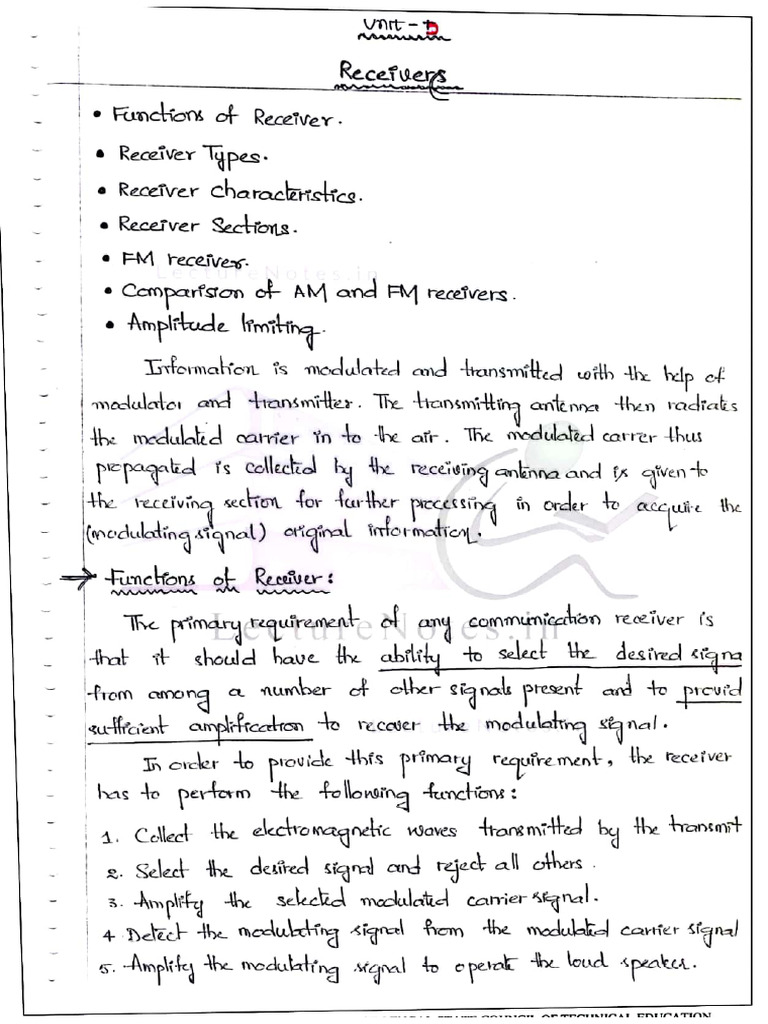 Unit-
Receivers
• Functions of Receiver.
• Receiver Types.
• Receiver characteristics.
• Receiver Sections.
• FM receiver.
LectureNotes.in
• Comparision of AM and FM receivers.
• Amplitude limiting.
Information is modulated and transmitted with the help of
modulator and transmitter. The transmitting antenna then radiates
the modulated carrier in to the air. The modulated carrer thus
propagated is collected by the receiving antenna and is given to
the receiving section for further processing in order to acquire the
(modulating signal) original information.
→ Functions of Receiver:
The primary requirement of any communication receiver is
LectureNotes.in
that it should have the ability to select the desired signa
from among a number of other signals present and to provid
sufficient amplification to recover the modulating signal.
In order to provide this primary requirement, the receiver
has to perform the following functions:
1. Collect the electromagnetic waves transmitted by the transmit
2. Select the desired signal and reject all others.
3. Amplify the selected modulated carrier signal.
4 Detect the modulating signal from the modulated carrier signal
5. Amplify the modulating signal to operate the loud speaker.
COUNCIL OF TECHNICAL EDUCATION